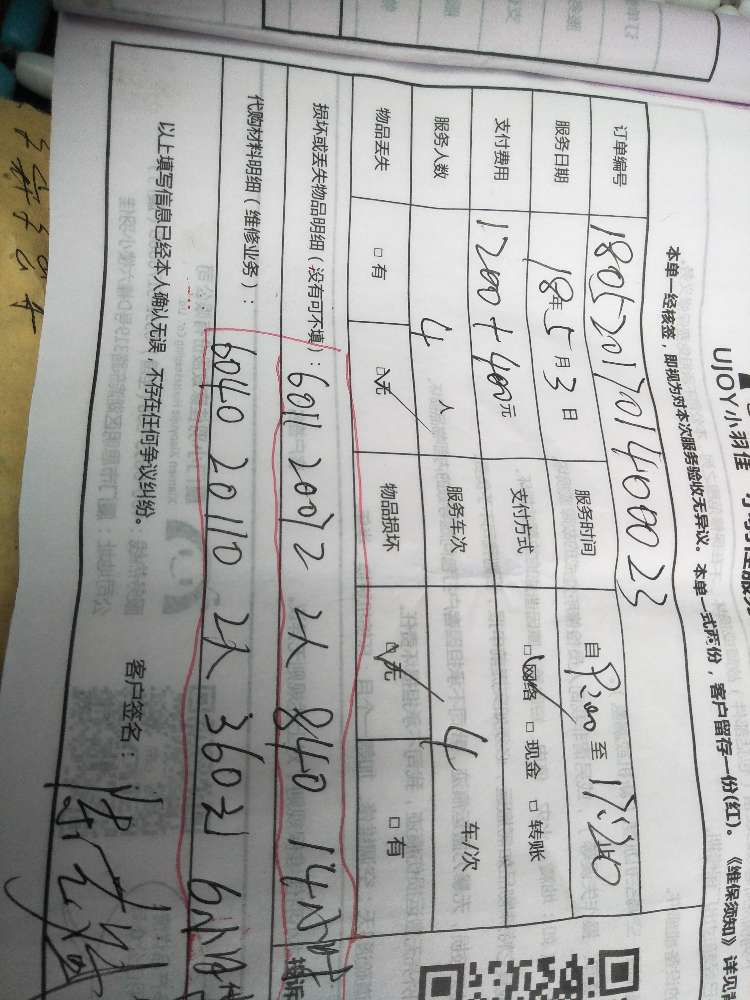 UJOY小羽佳
本单一经核签，即视为对本次服务验收无异议。本单一式两份，客户留存一份(红)。《维保须知》详见背
订单编号 180520170140002 3
服务日期 18年5月3日 服务时间 自 至 17:20
支付费用 1200+400元 支付方式 □网络 □现金 □转账
服务人数 4 人 服务车次 4 车/次
物品丢失 □有 □无 物品损坏 □无 □有
损坏或丢失物品明细（没有可不填）： 6011 20072 2人 840 14小时
代购材料明细（维修业务）： 6040 20110 2人 360元 6小时
以上填写信息已经本人确认无误，不存在任何争议纠纷。 客户签名：